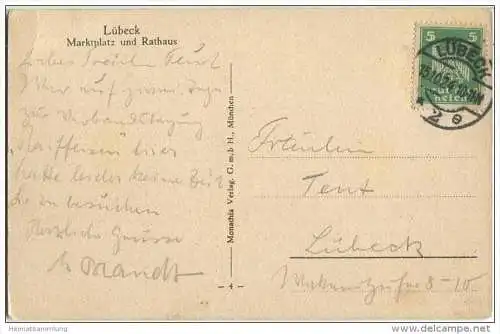 Lübeck
Marktplatz und Rathaus
Liebes Fräulein Tent
War auf zwei Tage
zur Verbandstagung
Raiffeisen hier
hatte leider keine Zeit
Sie zu besuchen
Herzliche Grüsse
Brandt
Monachia Verlag G. m. b. H., München
– 4 –
5 5
LÜBECK
Fräulein
Tent
Lübeck
8-10
Heimatsammlung.de
www.heimatsammlung.de